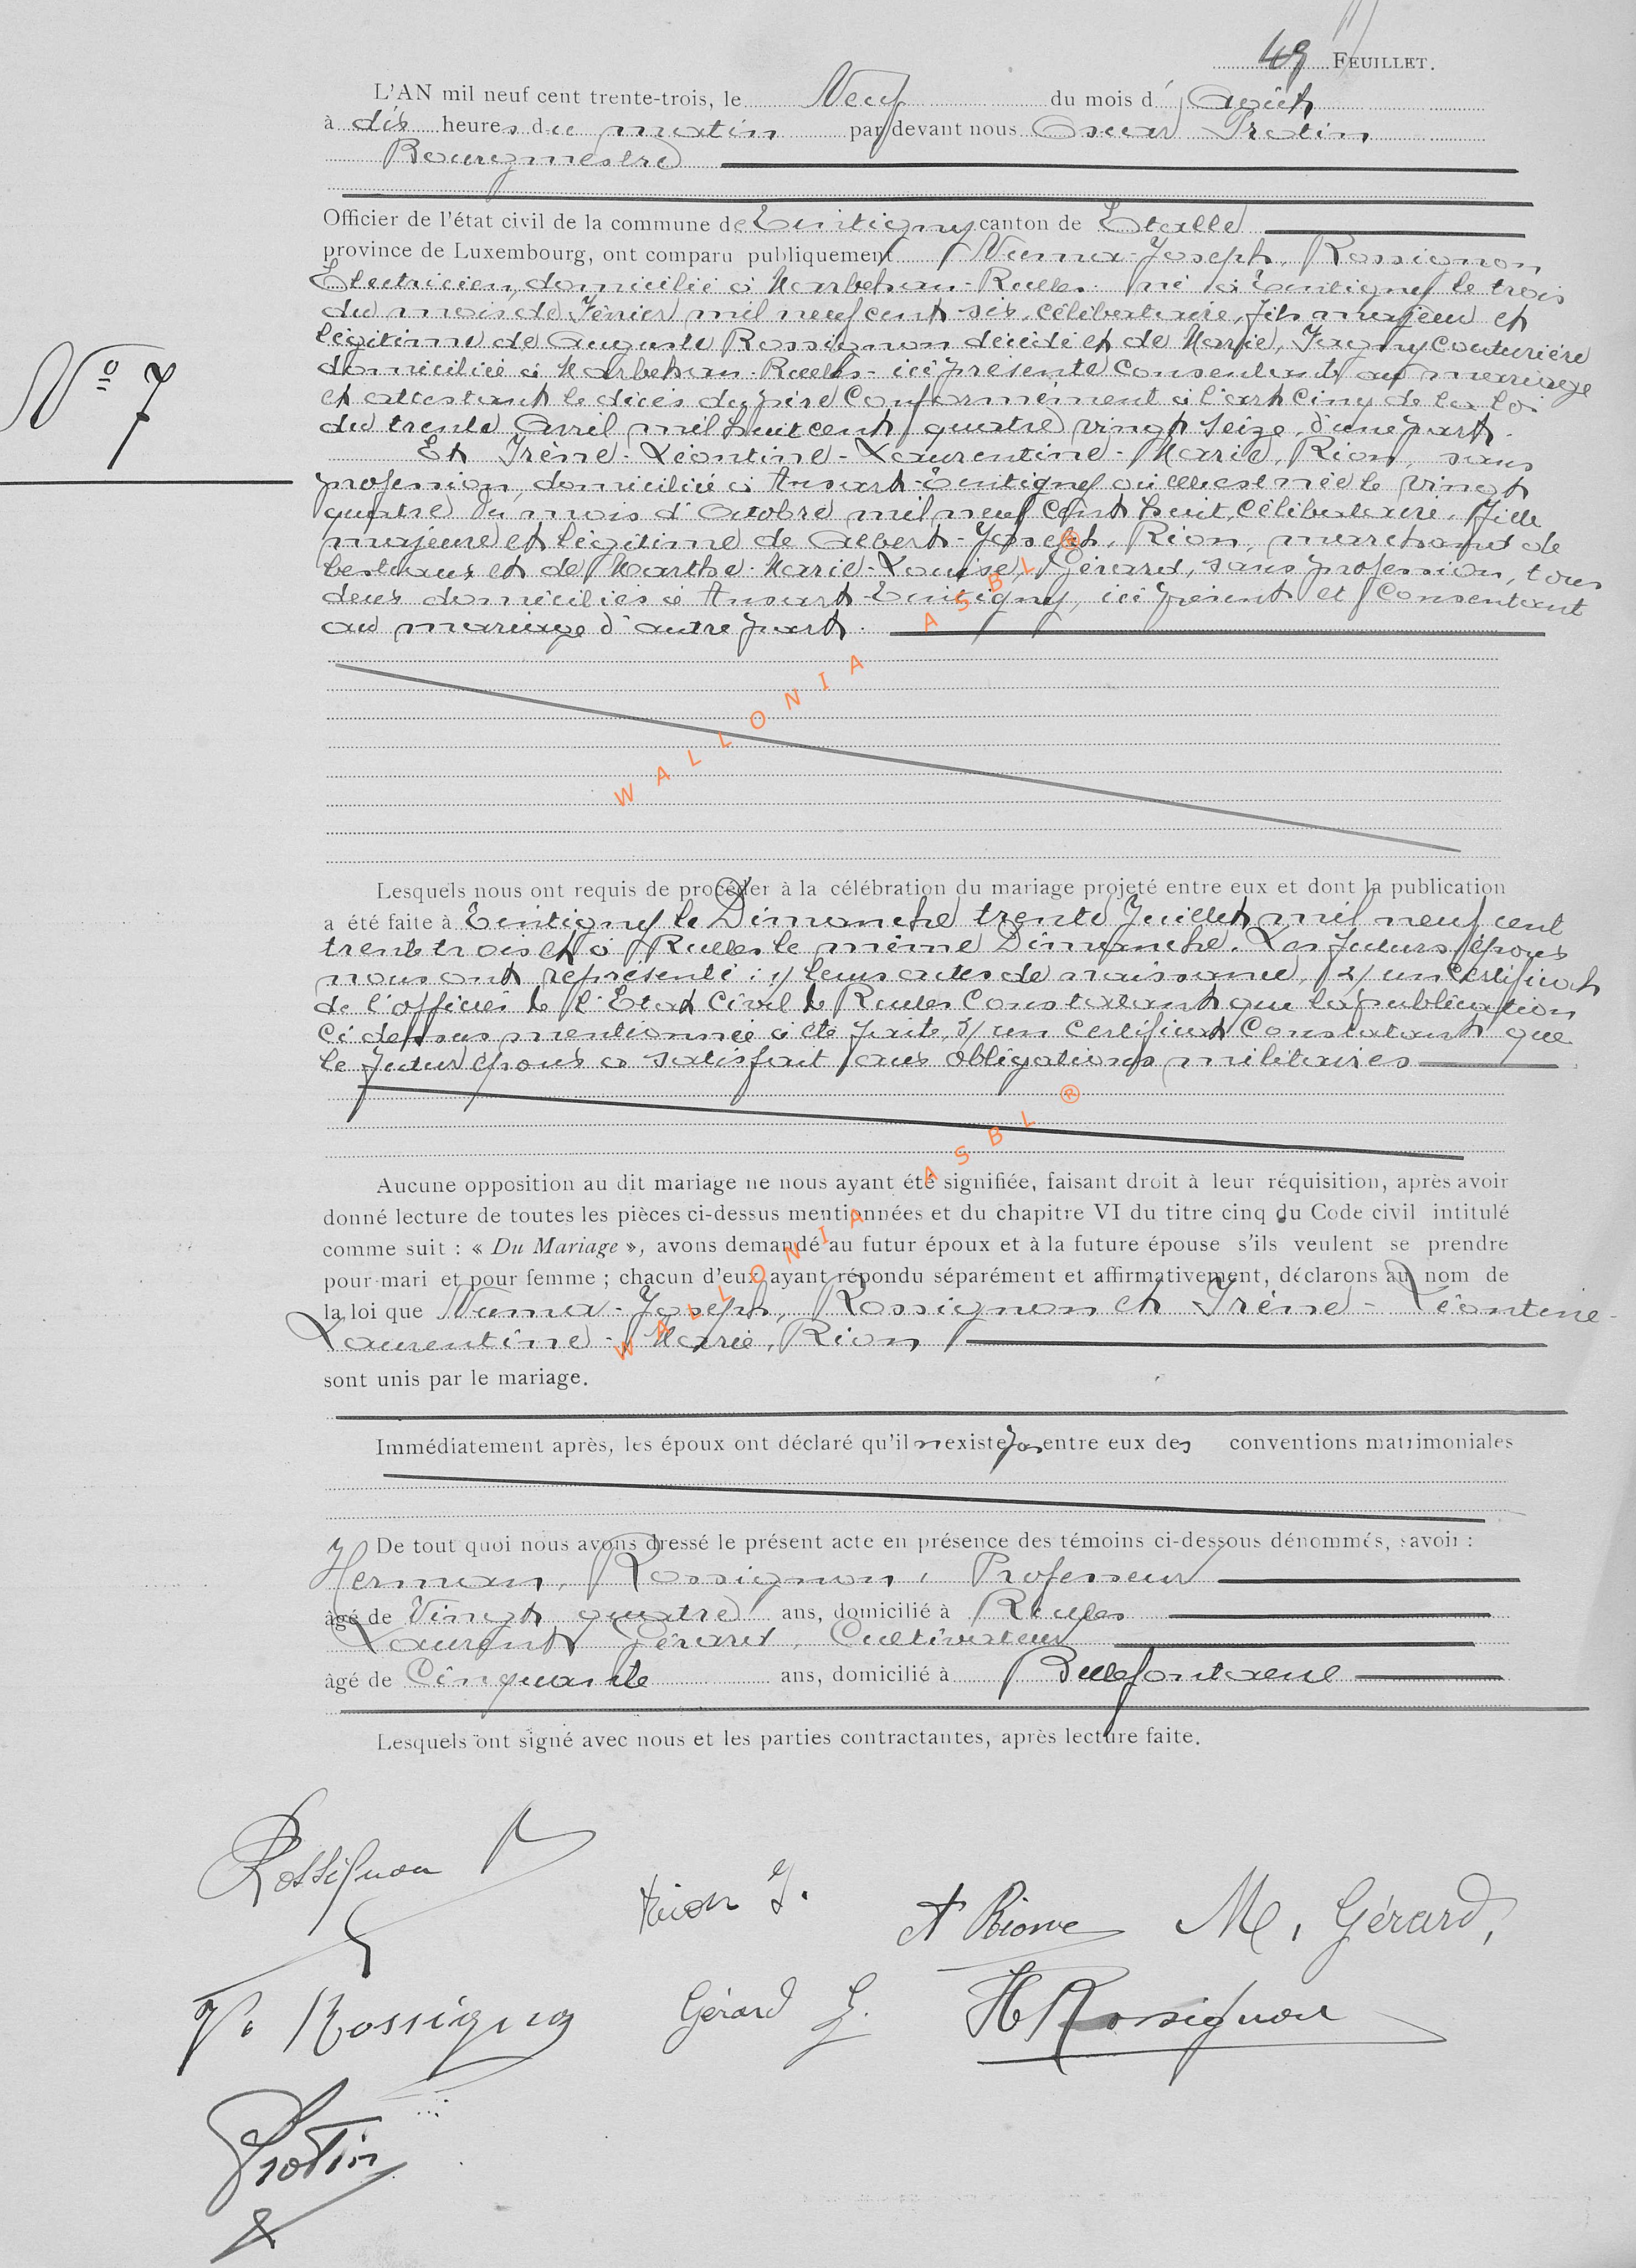 49 FEUILLET.
L'AN mil neuf cent trente-trois, le Neuf du mois d' Août
à dix heures du matin par devant nous Oscar Protin
Bourgmestre
Officier de l'état civil de la commune de Tintigny canton de Etalle
province de Luxembourg, ont comparu publiquement Numa-Joseph, Rossignon
Electricien, domicilié à Marbehan-Rulles né à Tintigny le trois
du mois de Février mil neuf cent six, célibataire, fils majeur et
légitime de Auguste Rossignon décédé et de Marie, Jagny couturière
domiciliée à Marbehan-Rulles- ici présente consentante au mariage
et attestant le décès du père conformément à l'art cinq de la loi
du trente Avril mil huit cent quatre vingt seize, d'une part.
Et Irène-Léontine-Laurentine-Marie, Rion, sans
profession, domiciliée à Ansart-Tintigny où elle est née le vingt
quatre du mois d'Octobre mil neuf cent huit, célibataire. Fille
majeure et légitime de Albert-Joseph, Rion, marchand de
bestiaux et de Marthe-Marie-Louise, Gérard, sans profession, tous
deux domiciliés à Ansart-Tintigny, ici présent et consentant
au mariage d'autre part.
WALLONIA ASBL ®
Lesquels nous ont requis de procéder à la célébration du mariage projeté entre eux et dont la publication
a été faite à Tintigny le Dimanche trente Juillet mil neuf cent
trente trois et à Rulles le même Dimanche. Les futurs époux
nous ont représenté: 1/ leurs actes de naissance, 2/ un certificat
de l'officier de l'Etat Civil de Rulles constatant que la publication
ci dessus mentionnée a été faite, 3/ un certificat constatant que
le futur époux a satisfait aux obligations militaires
WALLONIA ASBL ®
Aucune opposition au dit mariage ne nous ayant été signifiée, faisant droit à leur réquisition, après avoir
donné lecture de toutes les pièces ci-dessus mentionnées et du chapitre VI du titre cinq du Code civil intitulé
comme suit : « Du Mariage », avons demandé au futur époux et à la future épouse s'ils veulent se prendre
pour mari et pour femme ; chacun d'eux ayant répondu séparément et affirmativement, déclarons au nom de
la loi que Numa-Joseph, Rossignon et Irène-Léontine-
Laurentine-Marie, Rion
sont unis par le mariage.
Immédiatement après, les époux ont déclaré qu'il n'existe pas entre eux des conventions matrimoniales
De tout quoi nous avons dressé le présent acte en présence des témoins ci-dessous dénommés, savoir :
Herman, Rossignon, Professeur
âgé de Vingt quatre ans, domicilié à Rulles
Laurent Gérard, Cultivateur
âgé de Cinquante ans, domicilié à Bellefontaine
Lesquels ont signé avec nous et les parties contractantes, après lecture faite.
No 7
Rossignon
Rion I. A Rion M. Gérard,
Vve Rossignon Gérard L. H Rossignon
Protin